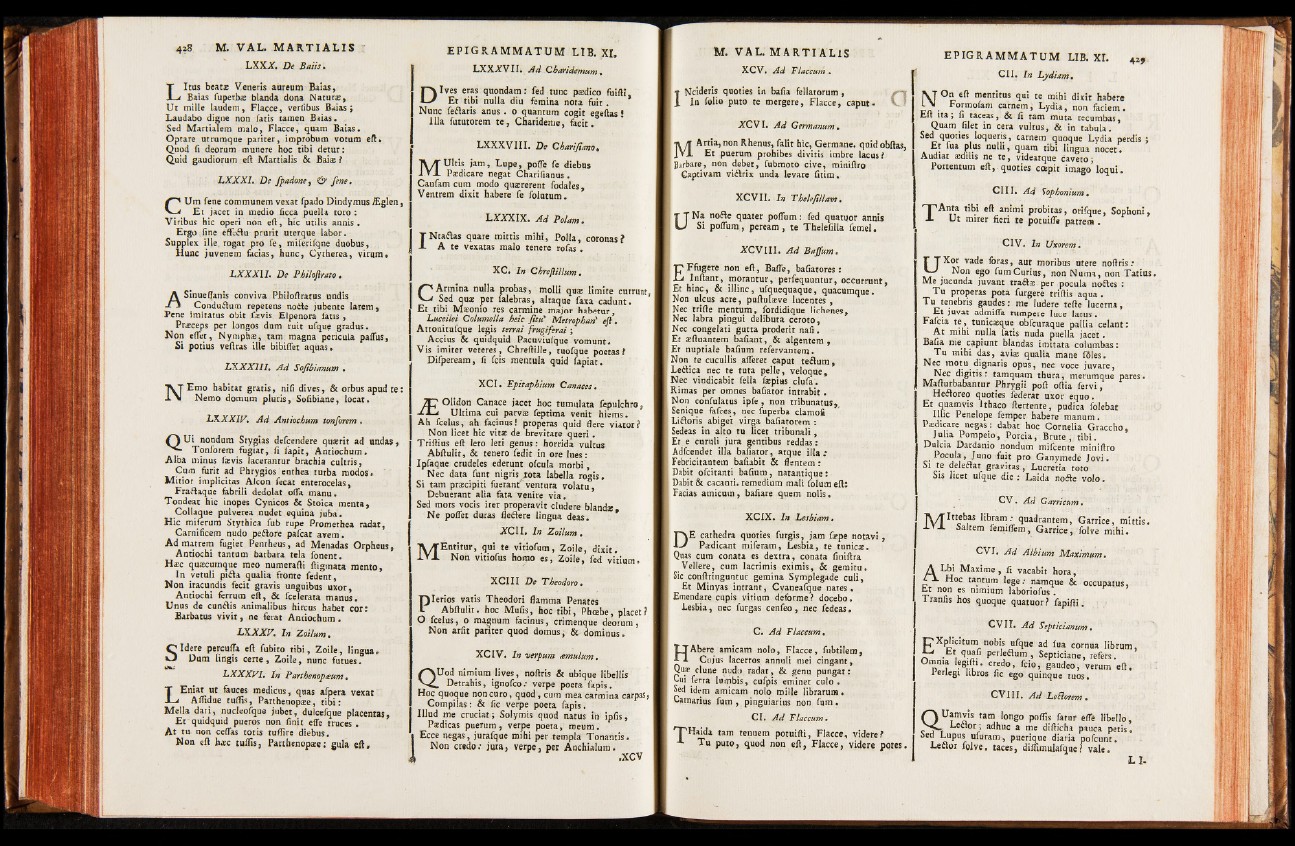 428 M. VAL. MARTIALIS
LXXX. De Baiis.
LItus beatæ Veneris aureum Baias,
Baias ſuperbæ blanda dona Naturæ,
Ut mille laudem, Flacce, verſibus Baias;
Laudabo digne non ſatis tamen Baias.
Sed Martialem malo, Flacce, quam Baias.
Optare utrumque pariter, improbum votum eſt.
Quod ſi deorum munere hoc tibi detur:
Quid gaudiorum eſt Martialis & Baiæ?
LXXXI. De ſpadone, & ſene.
CUm ſene communem vexat ſpado Dindymus Æglen,
Et jacet in medio ſicca puella toro:
Viribus hic operi non eſt, hic utilis annis.
Ergo ſine effectu prurit uterque labor.
Supplex illa rogat pro ſe, miſeriſque duobus,
Hunc juvenem facias, hunc, Cytherea, virum.
LXXXII. De Philoſtrato.
ASinueſſanis conviva Philoſtratus undis
Conductum repetens nocte jubente larem,
Pene imitatus obit ſævis Elpenora fatis,
Præceps per longos dum ruit uſque gradus.
Non eſſet, Nymphæ, tam magna pericula paſſus,
Si potius veſtras ille bibiſſet aquas.
LXXXIII. Ad Soſibianum.
NEmo habitat gratis, niſi dives, & orbus apud te:
Nemo domum pluris, Soſibiane, locat.
LXXXIV. Ad Antiochum tonſorem.
QUi nondum Stygias deſcendere quærit ad undas,
Tonſorem fugiat, ſi ſapit, Antiochum.
Alba minus ſævis lacerantur brachia cultris,
Cum furit ad Phrygios enthea turba modos.
Mitior implicitas Alcon ſecat enterocelas,
Fractaque fabrili dedolat oſſa manu.
Tondeat hic inopes Cynicos & Stoica menta,
Collaque pulverea nudet equina juba.
Hic miſerum Scythica ſub rupe Promethea radat,
Carnificem nudo pectore paſcat avem.
Ad matrem fugiet Pentheus, ad Menadas Orpheus,
Antiochi tantum barbara tela ſonent.
Hæc quæcumque meo numeraſti ſtigmata mento,
In vetuli picta qualia fronte ſedent,
Non iracundis fecit gravis unguibus uxor,
Antiochi ferrum eſt, & ſcelerata manus.
Unus de cunctis animalibus hircus habet cor:
Barbatus vivit, ne ferat Antiochum.
LXXXV. In Zoilum.
SIdere percuſſa eſt ſubito tibi, Zoile, lingua,
Dum lingis certe, Zoile, nunc futues.
LXXXVI. In Parthenopæum.
LEniat ut fauces medicus, quas aſpera vexat
Aſſidue tuſſis, Parthenopæe, tibi:
Mella dari, nucleoſque jubet, dulceſque placentas,
Et quidquid pueros non ſinit eſſe truces.
At tu non ceſſas totis tuſſire diebus.
Non eſt hæc tuſſis, Parthenopæe; gula eſt.
EPIGRAMMATUM LIB. XI.
LXXXVII. Ad Charidemum.
DIves eras quondam: ſed tunc pædico fuiſti,
Et tibi nulla diu femina nota fuit.
Nunc ſectaris anus. o quantum cogit egeſtas!
Illa fututorem te, Charideme, facit.
LXXXVIII. De Chariſiano.
MUltis jam, Lupe, poſſe ſe diebus
Pædicare negat Chariſianus.
Cauſam cum modo quærerent ſodales,
Ventrem dixit habere ſe ſolutum.
LXXXIX. Ad Polam.
INtactas quare mittis mihi, Polla, coronas?
A te vexatas malo tenere roſas.
XC. In Chreſtillum.
CArmina nulla probas, molli quæ limite currunt,
Sed quæ per ſalebras, altaque ſaxa cadunt.
Et tibi Mæonio res carmine major habetur,
Luceilei Columella heic ſitu' Metrophan' eſt.
Attonituſque legis terrai frugiferai;
Accius & quidquid Pacuviuſque vomunt.
Vis imiter veteres, Chreſtille, tuoſque poetas?
Diſpeream, ſi ſcis mentula quid ſapiat.
XCI. Epitaphium Canaces.
ÆOlidon Canace jacet hoc tumulata ſepulchro,
Ultima cui parvæ ſeptima venit hiems.
Ah ſcelus, ah facinus! properas quid flere viator?
Non licet hic vitæ de brevitate queri.
Triſtius eſt leto leti genus: horrida vultus
Abſtulit, & tenero ſedit in ore lues:
Ipſaque crudeles ederunt oſcula morbi,
Nec data ſunt nigris tota labella rogis.
Si tam præcipiti fuerant ventura volatu,
Debuerant alia fata venire via.
Sed mors vocis iter properavit cludere blandæ,
Ne poſſet duras flectere lingua deas.
XCII. In Zoilum.
MEntitur, qui te vitioſum, Zoile, dixit.
Non vitioſus homo es, Zoile, ſed vitium.
XCIII De Theodoro.
PIerios vatis Theodori flamma Penates
Abſtulit. hoc Muſis, hoc tibi, Phœbe, placet?
O ſcelus, o magnum facinus, crimenque deorum,
Non arſit pariter quod domus, & dominus.
XCIV. In verpum æmulum.
QUod nimium lives, noſtris & ubique libellis
Detrahis, ignoſco: verpe poeta ſapis.
Hoc quoque non curo, quod, cum mea carmina carpas,
Compilas: & ſic verpe poeta ſapis.
Illud me cruciat; Solymis quod natus in ipſis,
Pædicas puerum, verpe poeta, meum.
Ecce negas, juraſque mihi per templa Tonantis.
Non credo: jura, verpe, per Anchialum.
.XCV
M. VAL. MARTIALIS
XCV. Ad Flaccum.
INcideris quoties in baſia fellatorum,
In ſolio puto te mergere, Flacce, caput.
XCVI. Ad Germanum.
MArtia, non Rhenus, ſalit hic, Germane. quid obſtas,
Et puerum prohibes divitis imbre lacus?
Barbare, non debet, ſubmoto cive, miniſtro
Captivam victrix unda levare ſitim.
XCVII. In Theleſillam.
UNa nocte quater poſſum: ſed quatuor annis
Si poſſum, peream, te Theleſilla ſemel.
XCVIII. Ad Baſſum.
EFfugere non eſt, Baſſe, baſiatores:
Inſtant, morantur, perſequuntur, occurrunt,
Et hinc, & illinc, uſquequaque, quacumque.
Non ulcus acre, puſtulæve lucentes,
Nec triſte mentum, ſordidique lichenes,
Nec labra pingui delibuta ceroto,
Nec congelati gutta proderit naſi.
Et æſtuantem baſiant, & algentem,
Et nuptiale baſium reſervantem.
Non te cucullis aſſeret caput tectum,
Lectica nec te tuta pelle, veloque,
Nec vindicabit ſella ſæpius cluſa.
Rimas per omnes baſiator intrabit.
Non conſulatus ipſe, non tribunatus,
Senique faſces, nec ſuperba clamoſi
Lictoris abiget virga baſiatorem:
Sedeas in alto tu licet tribunali,
Et e curuli jura gentibus reddas:
Adſcendet illa baſiator, atque illa:
Febricitantem baſiabit & flentem:
Dabit oſcitanti baſium, natantique:
Dabit & cacanti. remedium mali ſolum eſt:
Facias amicum, baſiare quem nolis.
XCIX. In Lesbiam.
DE cathedra quoties ſurgis, jam ſæpe notavi,
Pædicant miſeram, Lesbia, te tunicæ.
Quas cum conata es dextra, conata ſiniſtra
Vellere, cum lacrimis eximis, & gemitu.
Sic conſtringuntur gemina Symplegade culi,
Et Minyas intrant, Cyaneaſque nates.
Emendare cupis vitium deforme? docebo.
Lesbia, nec ſurgas cenſeo, nec ſedeas.
C. Ad Flaccum.
HAbere amicam nolo, Flacce, ſubtilem,
Cujus lacertos annuli mei cingant,
Quæ clune nudo radat, & genu pungat:
Cui ſerra lumbis, cuſpis eminet culo.
Sed idem amicam nolo mille librarum.
Carnarius ſum, pinguiarius non ſum.
CI. Ad Flaccum.
THaida tam tenuem potuiſti, Flacce, videre?
Tu puto, quod non eſt, Flacce, videre potes.
EPIGRAMMATUM LIB. XI. 429
CII. In Lydiam.
NOn eſt mentitus qui te mihi dixit habere
Formoſam carnem, Lydia, non faciem.
Eſt ita; ſi taceas, & ſi tam muta recumbas,
Quam ſilet in cera vultus, & in tabula.
Sed quoties loqueris, carnem quoque Lydia perdis;
Et ſua plus nulli, quam tibi lingua nocet.
Audiat ædilis ne te, videatque caveto;
Portentum eſt, quoties cœpit imago loqui.
CIII. Ad Sophonium.
TAnta tibi eſt animi probitas, oriſque, Sophoni,
Ut mirer fieri te potuiſſe patrem.
CIV. In Uxorem.
UXor vade foras, aut moribus utere noſtris:
Non ego ſum Curius, non Numa, non Tatius.
Me jucunda juvant tractæ per pocula noctes:
Tu properas pota ſurgere triſtis aqua.
Tu tenebris gaudes: me ludere teſte lucerna,
Et juvat admiſſa rumpere luce latus.
Faſcia te, tunicæque obſcuraque pallia celant:
At mihi nulla ſatis nuda puella jacet.
Baſia me capiunt blandas imitata columbas:
Tu mihi das, aviæ qualia mane ſoles.
Nec motu dignaris opus, nec voce juvare,
Nec digitis: tamquam thura, merumque pares.
Maſturbabantur Phrygii poſt oſtia ſervi,
Hectoreo quoties ſederat uxor equo.
Et quamvis Ithaco ſtertente, pudica ſolebat
Illic Penelope ſemper habere manum.
Pædicare negas: dabat hoc Cornelia Graccho,
Julia Pompeio, Porcia, Brute, tibi.
Dulcia Dardanio nondum miſcente miniſtro
Pocula, Juno fuit pro Ganymede Jovi.
Si te delectat gravitas, Lucretia toto
Sis licet uſque die: Laida nocte volo.
CV. Ad Garricum.
MIttebas libram: quadrantem, Garrice, mittis.
Saltem ſemiſſem, Garrice, ſolve mihi.
CVI. Ad Albium Maximum.
ALbi Maxime, ſi vacabit hora,
Hoc tantum lege: namque & occupatus,
Et non es nimium laborioſus.
Tranſis hos quoque quatuor? ſapiſti.
CVII. Ad Septicianum.
EXplicitum nobis uſque ad ſua cornua librum,
Et quaſi perlectum, Septiciane, refers.
Omnia legiſti. credo, ſcio, gaudeo, verum eſt.
Perlegi libros ſic ego quinque tuos.
CVIII. Ad Lectorem.
QUamvis tam longo poſſis ſatur eſſe libello,
Lector; adhuc a me diſticha pauca petis.
Sed Lupus uſuram, puerique diaria poſcunt.
Lector ſolve. taces, diſſimulaſque? vale.
L I-